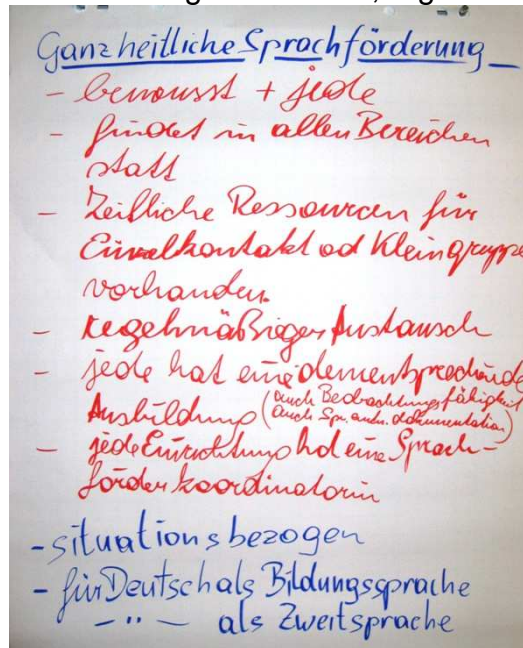 Ganzheitliche Sprachförderung
- bewusst + jede
- findet in allen Bereichen
statt
- Zeitliche Ressourcen für
Einzelkontakt od Kleingruppe
vorhanden.
- regelmäßiger Austausch
- jede hat eine dementsprechende
Ausbildung (auch Beobachtungsfähigkeit
auch Spr. dokumentation)
- jede Einrichtung hat eine Sprach-
förderkoordinatorin
- situationsbezogen
- für Deutsch als Bildungssprache
- " - als Zweitsprache